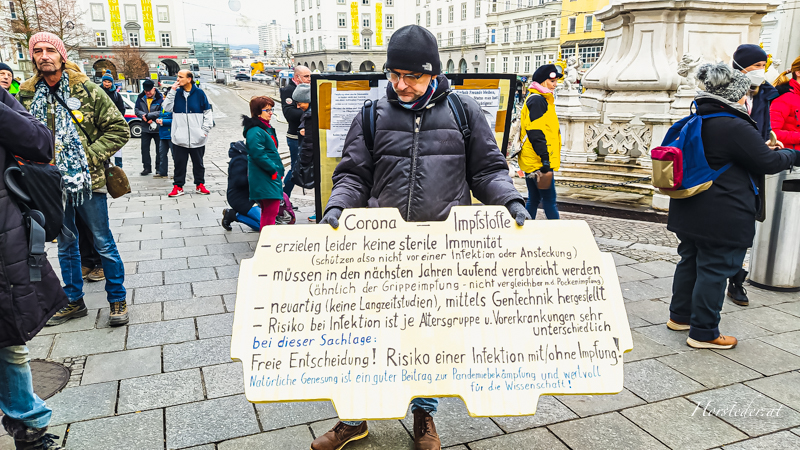 Corona – Impfstoffe
– erzielen leider keine sterile Immunität
(schützen also nicht vor einer Infektion oder Ansteckung)
– müssen in den nächsten Jahren laufend verabreicht werden
(ähnlich der Grippeimpfung - nicht vergleichbar m.d. Pockenimpfung)
– neuartig (keine Langzeitstudien), mittels Gentechnik hergestellt
– Risiko bei Infektion ist je Altersgruppe u. Vorerkrankungen sehr
unterschiedlich
bei dieser Sachlage:
Freie Entscheidung! Risiko einer Infektion mit/ohne Impfung!
Natürliche Genesung ist ein guter Beitrag zur Pandemiebekämpfung und wertvoll
für die Wissenschaft!
Horsterder.at